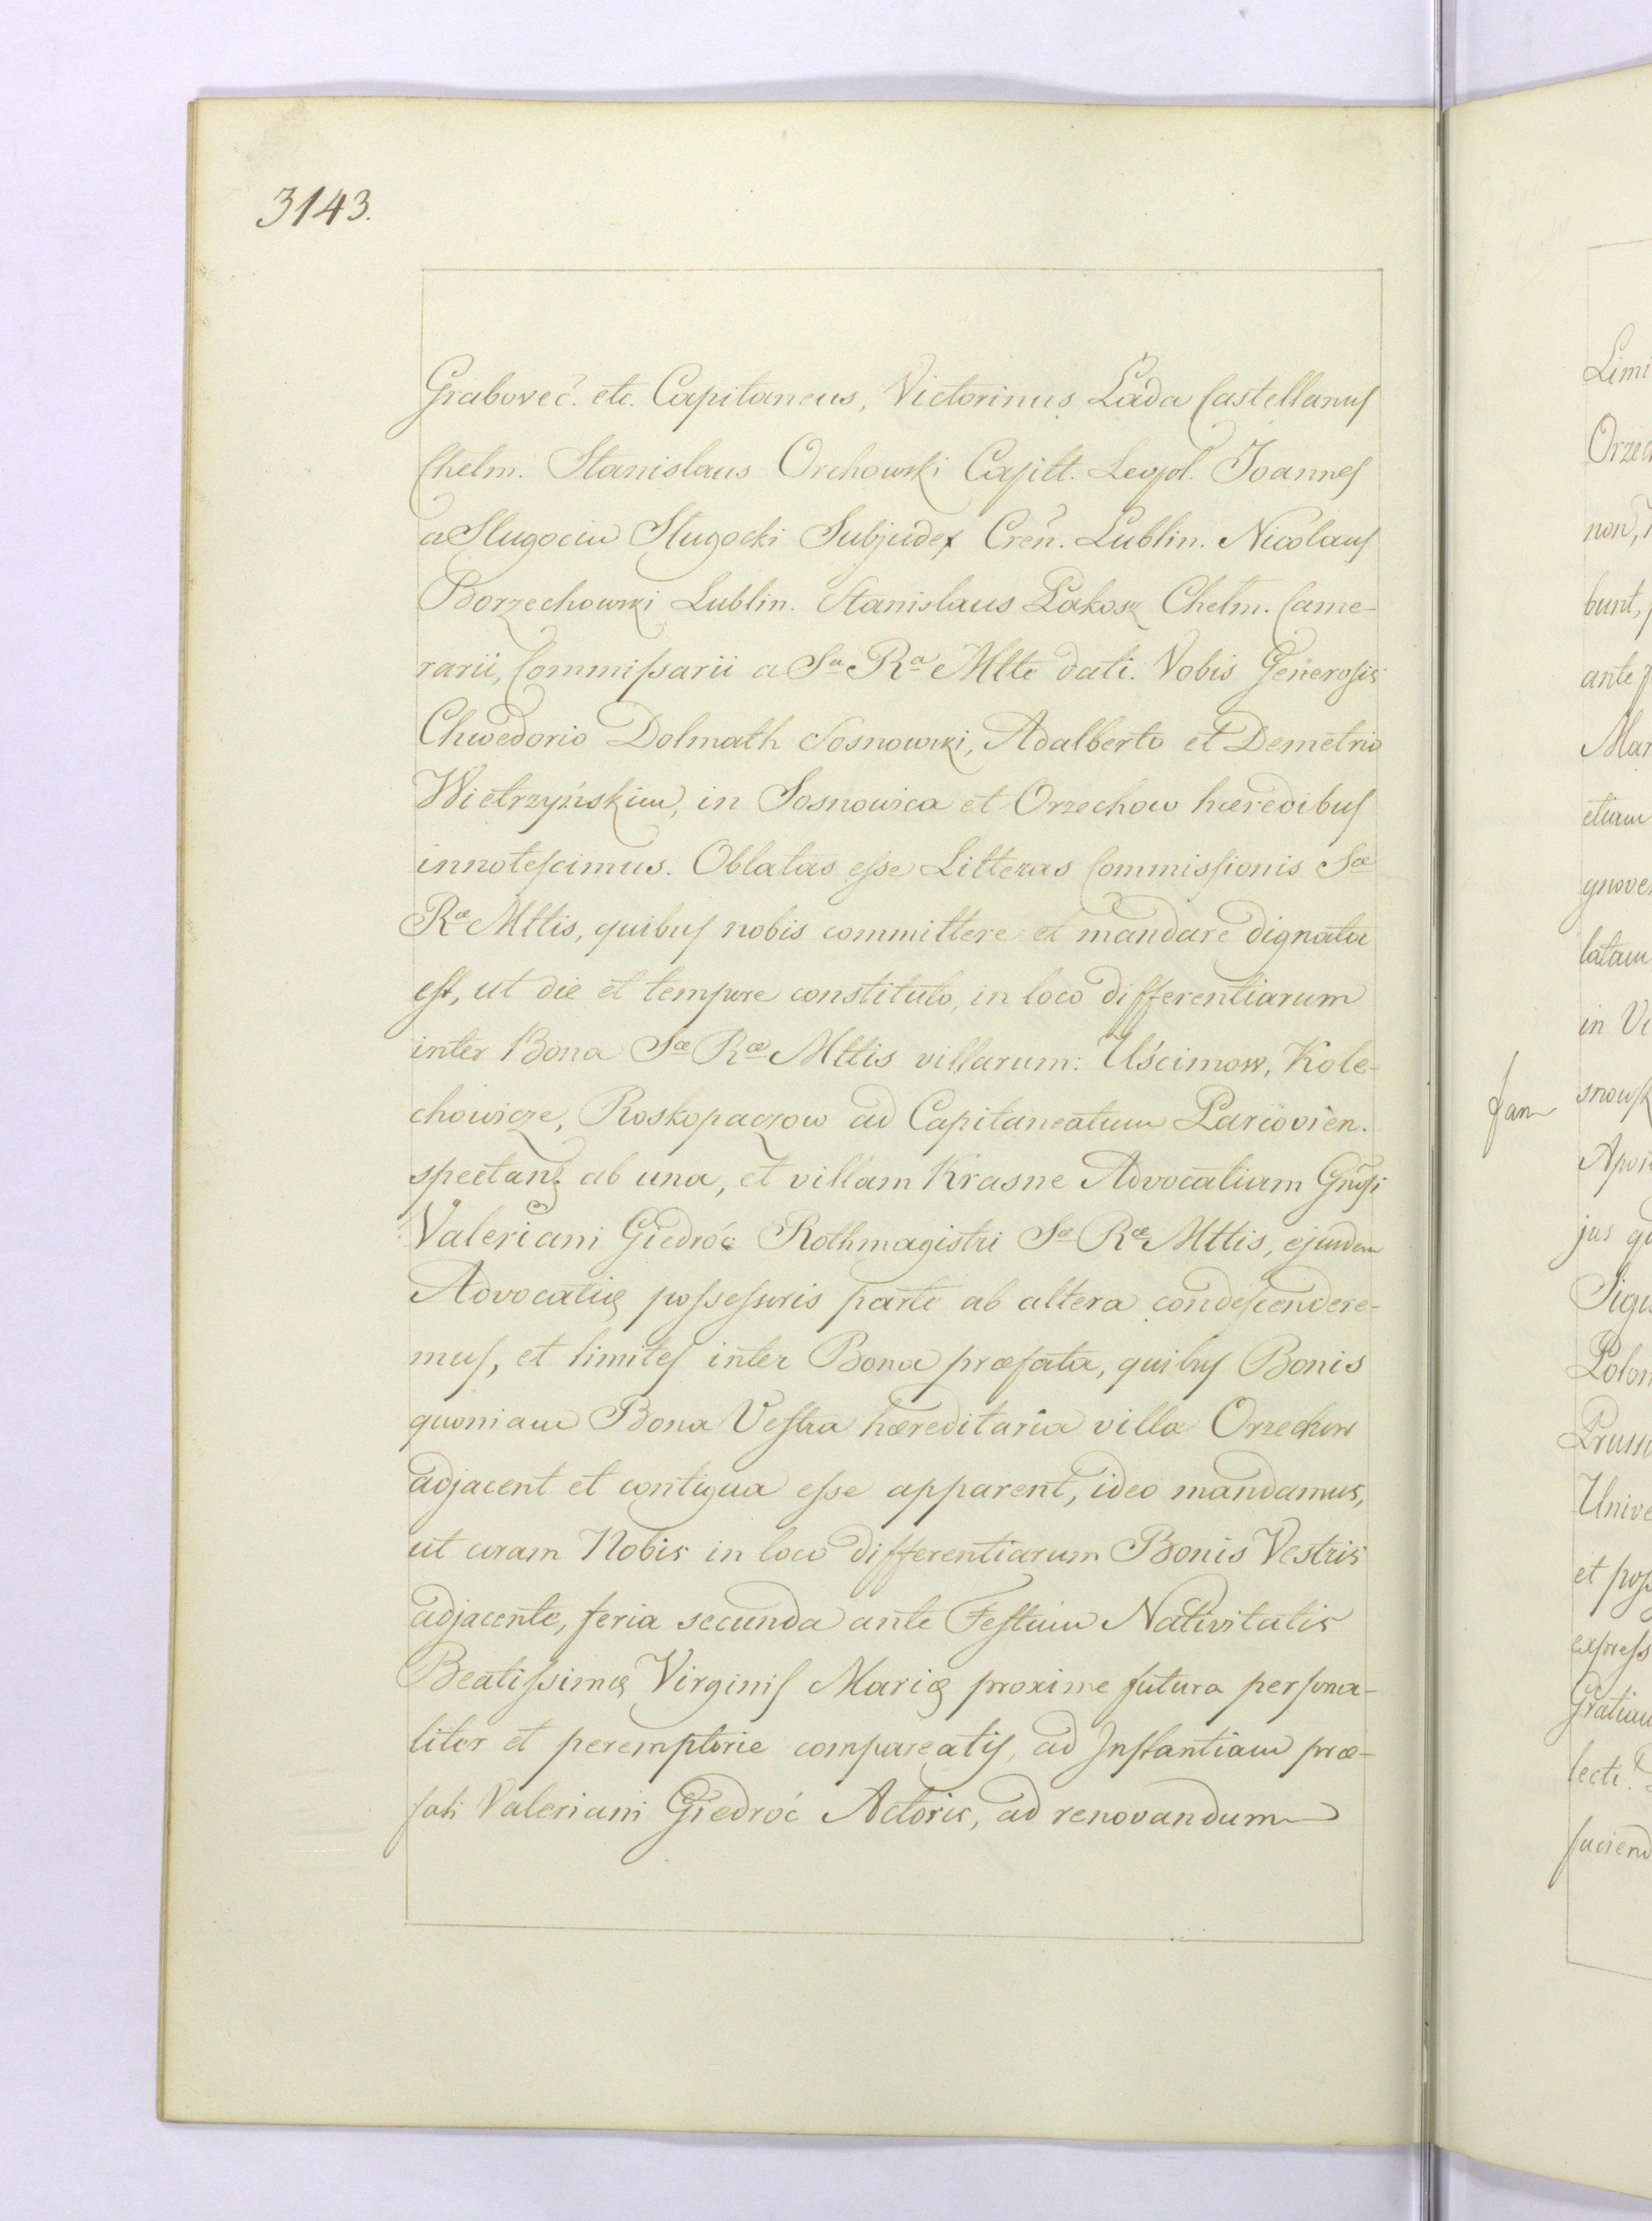 3143.
Grabovec̃. etc. Capitaneus, Victorinus Łada Castellanus
Chelm. Stanislaus Orchowski Capitt. Leopol. Joannes
a Slugocin Slugocki Subjudex Creñ. Lublin. Nicolaus
Borzechowski Lublin. Stanislaus Lakosz Chelm. Came-
rarii, Commissarii a Sa Ra Mtte dati. Vobis Generosis
Chwedorio Dolmath Sosnowski, Adalberto et Demetrio
Wietrzyńskim, in Sosnowica et Orzechow hæredibus
innotescimus. Oblatas esse Litteras Commissionis Sæ
Ræ Mttis, quibus nobis committere et mandare dignata
est, ut die et tempore constituto, in loco differentiarum
inter Bona Sæ Ræ Mttis villarum: Uścimow, Kole-
chowicze, Roskopaczow ad Capitaneatum Parcovien.
spectan. ab una, et villam Krasne Advocatiam Gñsi
Valeriani Giedroć Rothmagistri Sæ Ræ Mttis, ejusdem
Advocatię possessoris parte ab altera condescendere-
mus, et limites inter Bona præfata, quibus Bonis
quoniam Bona Vestra hæreditaria villa Orzechow
adjacent et contigua esse apparent, ideo mandamus,
ut coram Nobis in loco differentiarum Bonis Vestris
adjacente, feria secunda ante Festum Nativitatis
Beatissimę Virginis Marię proxime futura persona-
liter et peremptorie compareatis, ad Instantiam præ-
fati Valeriani Giedroć Actoris, ad renovandum
fan
Limi
Orzech
non,
bunt,
ante
Mar
etiam
gnove
latam
in Vi
snowsk
jus qu
Sigis
Polon
Unive
et poss
express
Gratiam
lecti.
faciend